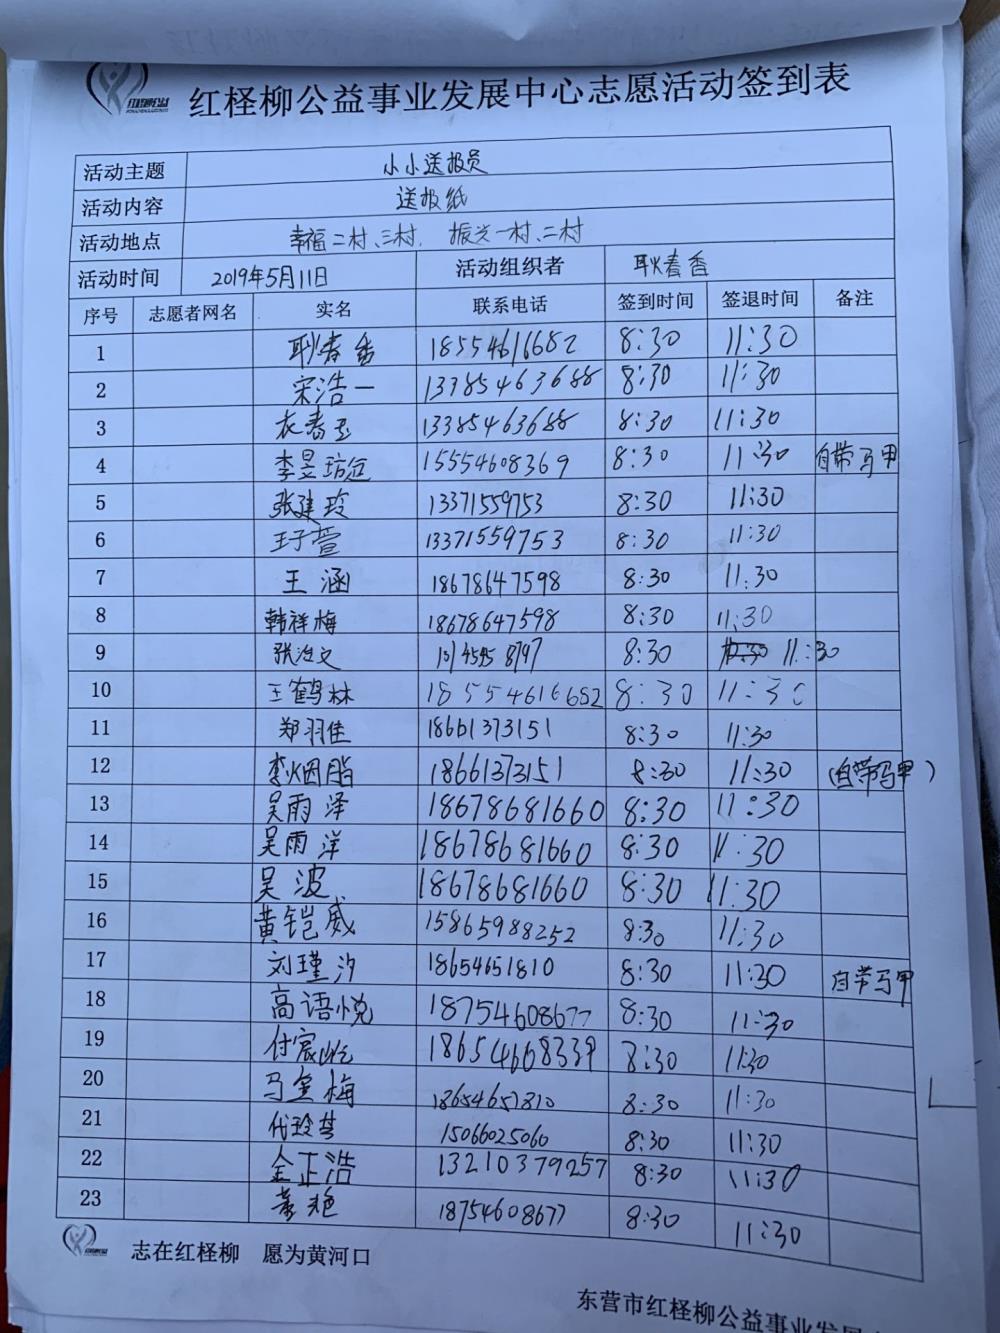 红柽柳公益事业发展中心志愿活动签到表
活动主题 小小送报员
活动内容 送报纸
活动地点 幸福二村、三村, 振兴一村、二村
活动时间 2019年5月11日 活动组织者 耿春香
序号 志愿者网名 实名 联系电话 签到时间 签退时间 备注
1 耿春香 18554616682 8:30 11:30
2 宋浩一 13385463688 8:30 11:30
3 衣春玉 13385463688 8:30 11:30
4 李昱 15554608369 8:30 11:30 自带马甲
5 张建玲 13371559753 8:30 11:30
6 王子萱 13371559753 8:30 11:30
7 王涵 18678647598 8:30 11:30
8 韩祥梅 18678647598 8:30 11:30
9 8:30 11:30
10 王鹤林 18554616682 8:30 11:30
11 郑羽佳 18661373151 8:30 11:30
12 李烟脂 18661373151 8:30 11:30 (自带马甲)
13 吴雨泽 18678681660 8:30 11:30
14 吴雨洋 18678681660 8:30 11:30
15 吴波 18678681660 8:30 11:30
16 黄铠威 15865988252 8:30 11:30
17 刘瑾汐 18654651810 8:30 11:30 自带马甲
18 高语悦 18754608677 8:30 11:30
19 付宸屹 18654668339 8:30 11:30
20 马金梅 18654651810 8:30 11:30
21 代玲芝 15066025060 8:30 11:30
22 金正浩 13210379257 8:30 11:30
23 黄艳 18754608677 8:30 11:30
志在红柽柳 愿为黄河口
东营市红柽柳公益事业发展